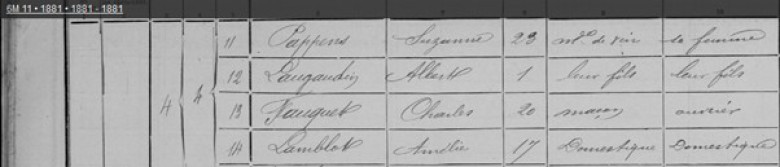 6M 11 • 1881 • 1881 - 1881
11 Pappens Suzanne 23 md de vin sa femme
12 Laugaudin Albert 1 leur fils leur fils
4 4 13 Fauquet Charles 20 maçon ouvrier
14 Lamblot Amélie 17 Domestique Domestique